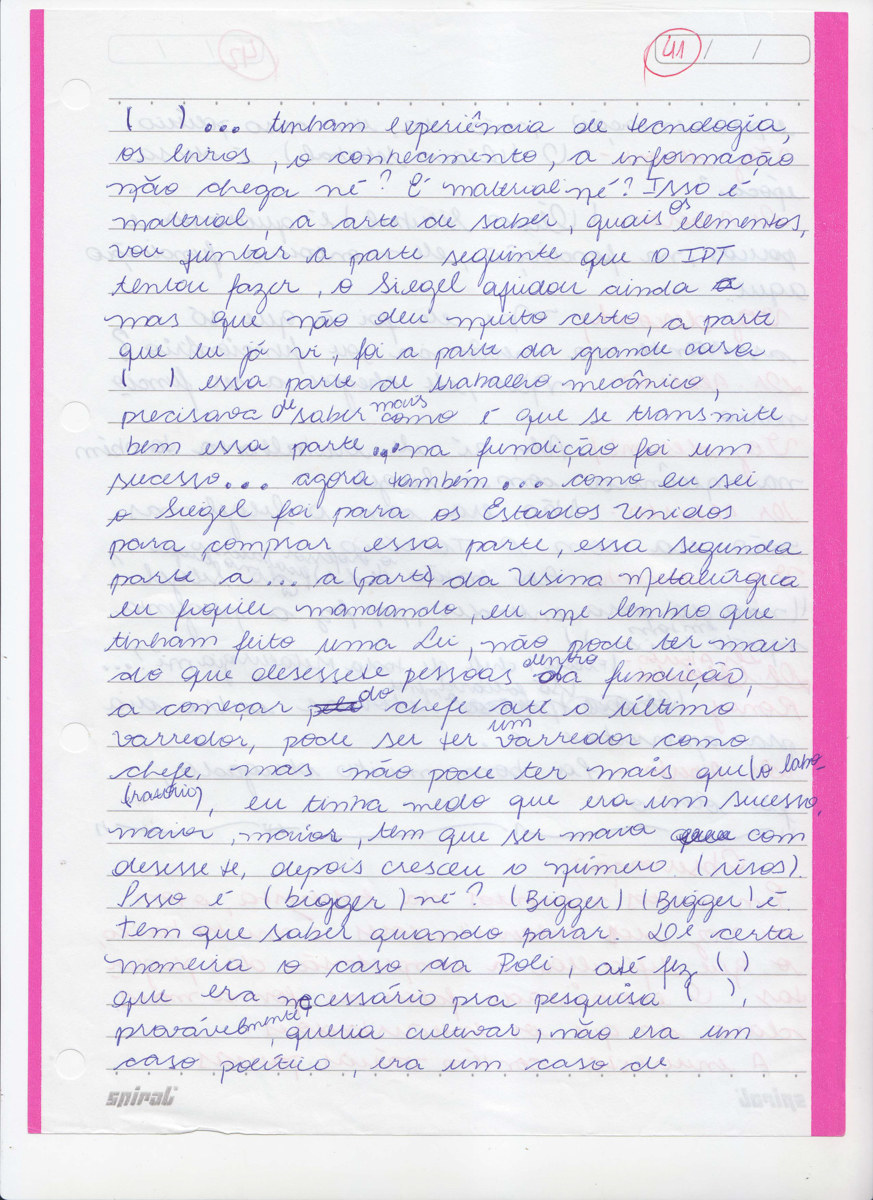 41 / /
( )... tinham experiência de tecnologia,
os livros, o conhecimento, a informação
não chega né? É material né? Isso é
material, a arte de saber, quais os elementos,
vou juntar a parte seguinte que o IPT
tentou fazer, o Siegel ajudou ainda
mas que não deu muito certo, a parte
que eu já vi, foi a parte da grande casa
( ) essa parte de trabalho mecânico,
precisava de saber mais como é que se transmite
bem essa parte... na fundição foi um
sucesso... agora também... como eu sei
o Siegel foi para os Estados Unidos
para comprar essa parte, essa segunda
parte a... a (parte) da Usina Metalúrgica
eu fiquei mandando, eu me lembro que
tinham feito uma Lei, não pode ter mais
do que desessete pessoas dentro da fundição,
a começar do chefe até o último
varredor, pode ser ter um varredor como
chefe, mas não pode ter mais que (o labo-
(ratório), eu tinha medo que era um sucesso,
maior, maior, tem que ser com
desessete, depois cresceu o número (risos).
Isso é (bigger) né? (Bigger) (Bigger) é.
tem que saber quando parar. De certa
maneira o caso da Poli, até fez ( )
que era necessário pra pesquisa ( ),
provávelmente, queria cultivar, não era um
caso político, era um caso de
spiral